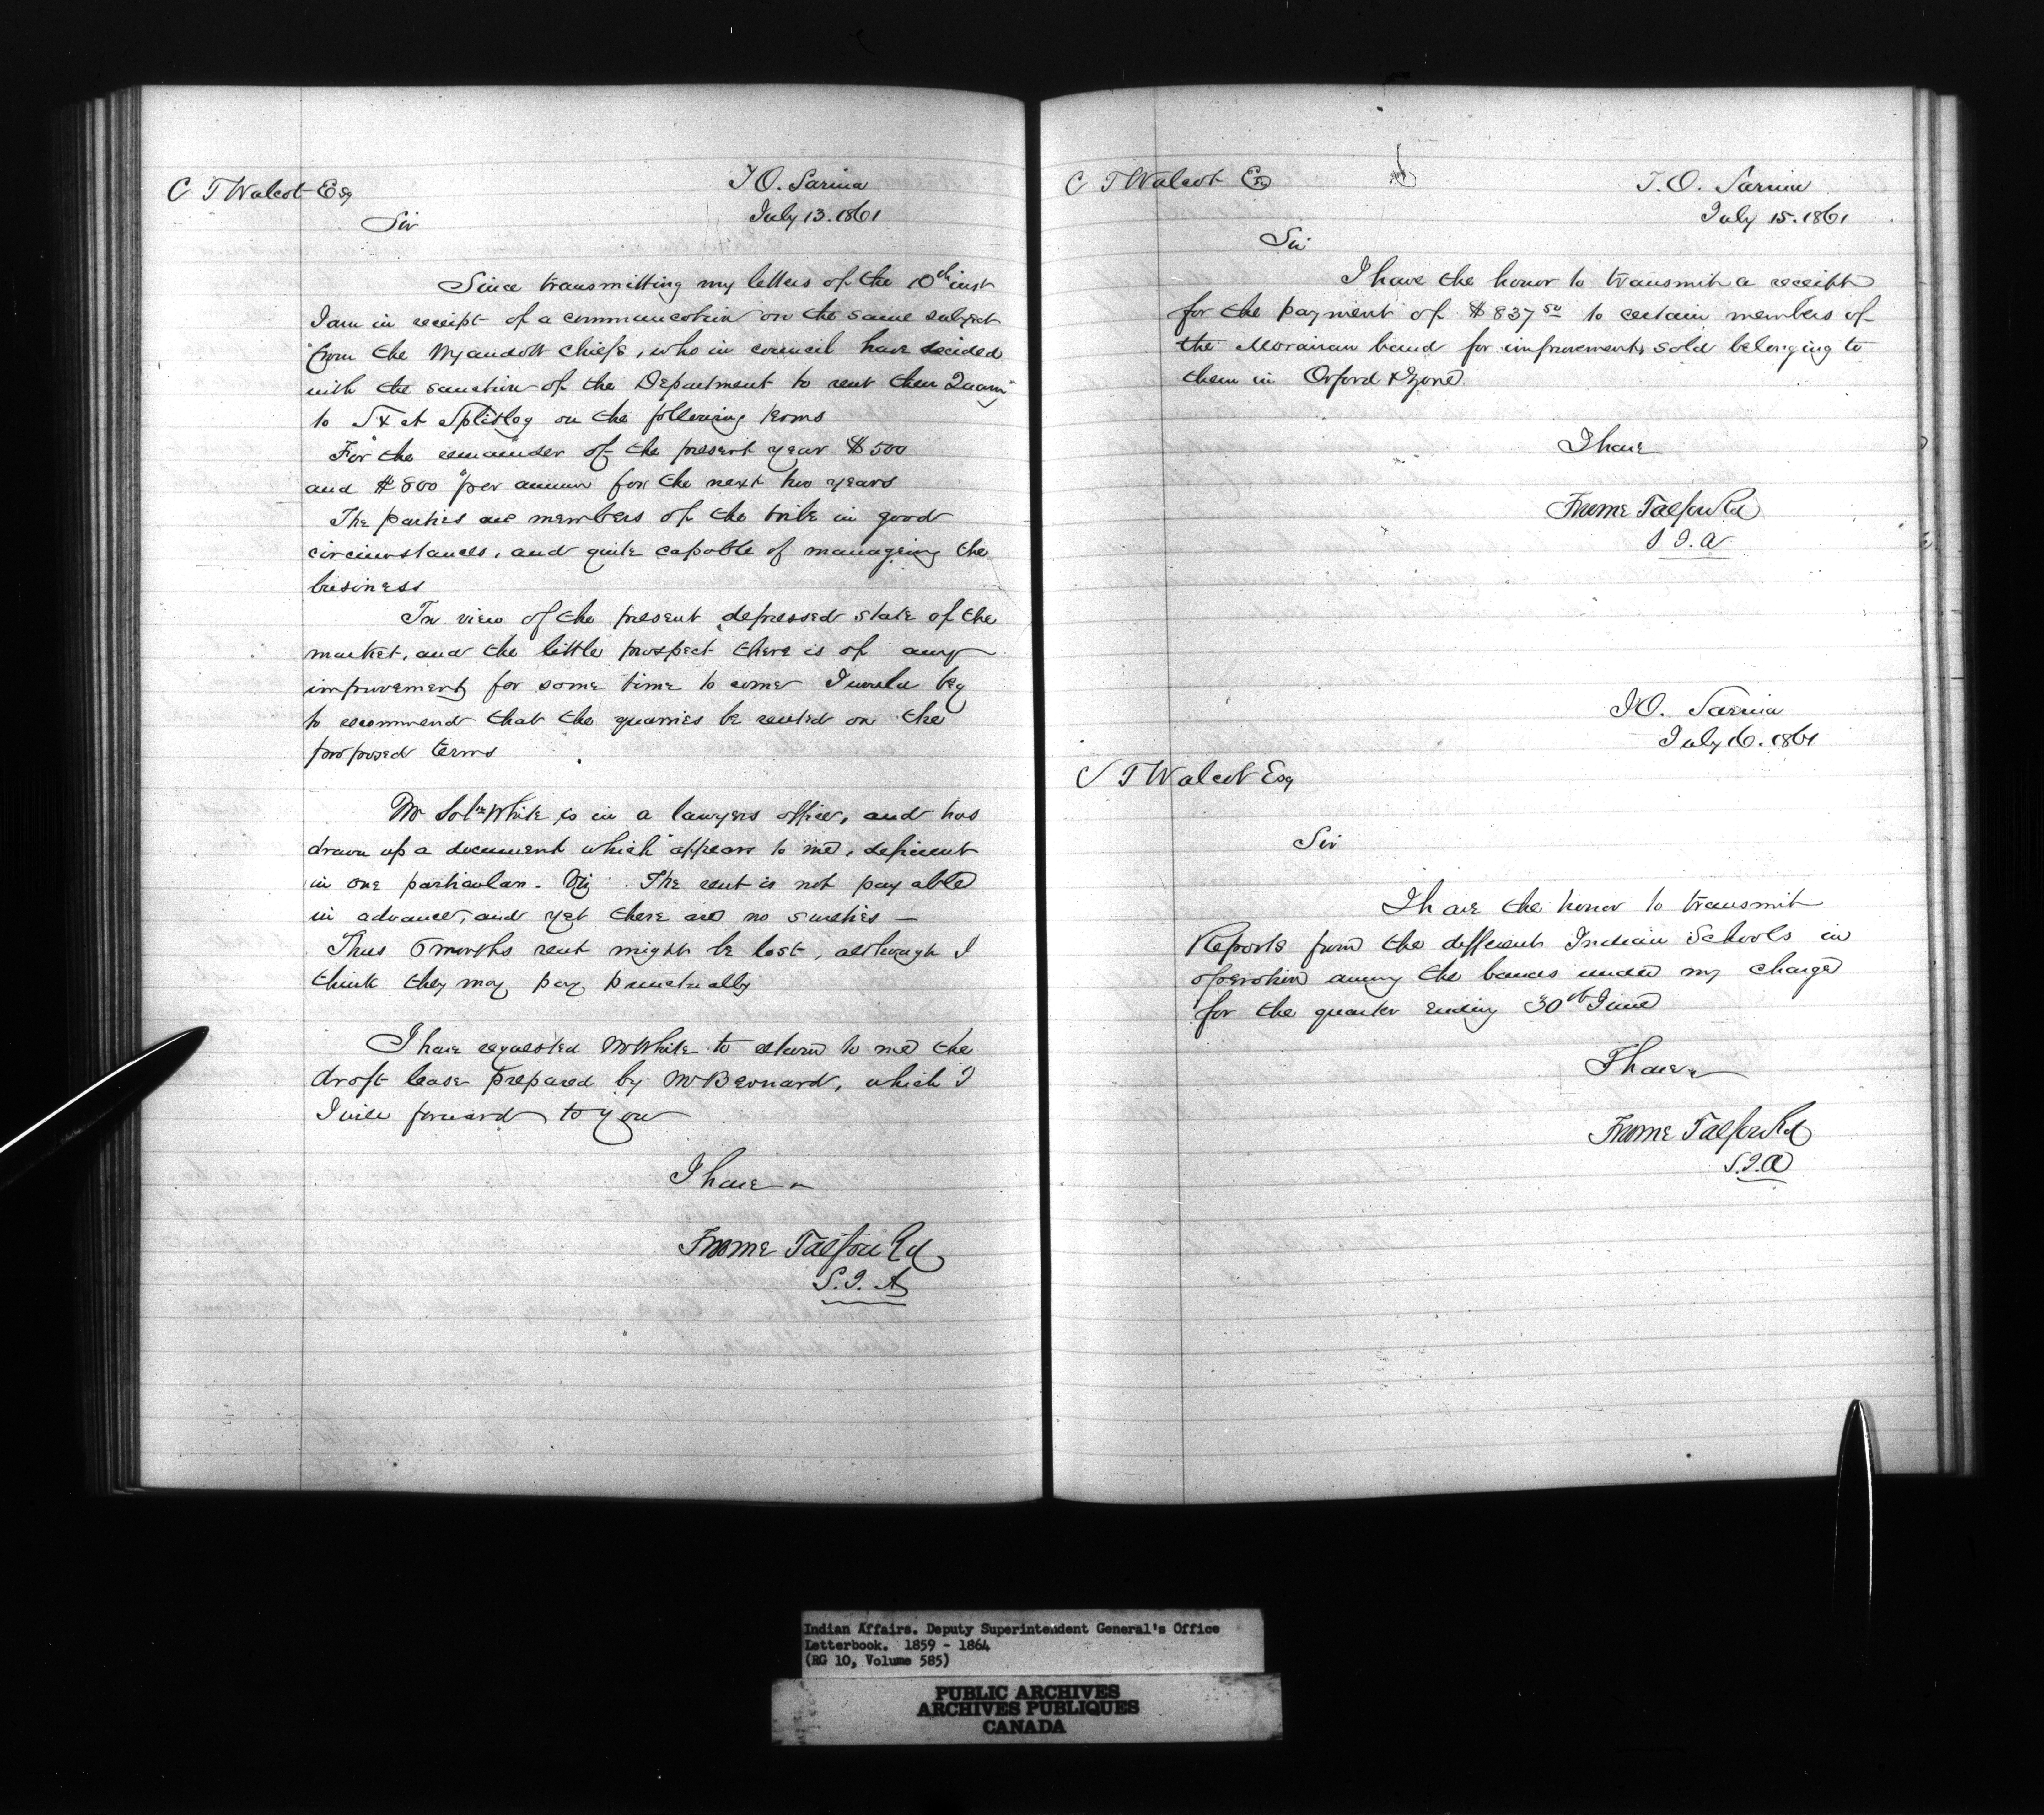 C T Walcot Esq
I O. Sarnia
July 13. 1861
Sir
Since transmitting my letters of the 10th inst
I am in receipt of a communication on the same subject
from the Wyandott Chiefs, who in council have decided
with the sanction of the Department to rent their Quarry
to & Splitlog on the following terms
For the remainder of the present year $500
and $800 per annum for the next two years
The parties are members of the tribe in good
circumstances, and quite capable of manageing the
business
In view of the present depressed state of the
market, and the little prospect there is of any
improvement for some time to come I would beg
to recommend that the quarries be rented on the
proposed terms
Mr Soln White is in a lawyers office, and has
drawn up a document which appears to me, deficient
in one particular. Viz. The rent is not payable
in advance, and yet there are no sureties —
Thus 6 months rent might be lost, although I
think they may pay punctually
I have requested Mr White to return to me the
draft lease prepared by Mr Bernard, which I
I will forward to you
I have
Froome Talfourd
S. I. A
C T Walcot Esq
I. O. Sarnia
July 15. 1861
Sir
I have the honor to transmit a receipt
for the payment of $837 50 to certain members of
the Moravian band for improvements sold belonging to
them in Orford & Zone
I have
Froome Talfourd
S I. A
I O. Sarnia
July 16. 1861
C T Walcot Esq
Sir
I have the honor to transmit
Reports from the different Indian Schools in
operation among the bands under my charge
for the quarter ending 30th June
I have
Froome Talfourd
S. I. A
Indian Affairs. Deputy Superintendent General's Office
Letterbook. 1859 - 1864
(RG 10, Volume 585)
PUBLIC ARCHIVES
ARCHIVES PUBLIQUES
CANADA